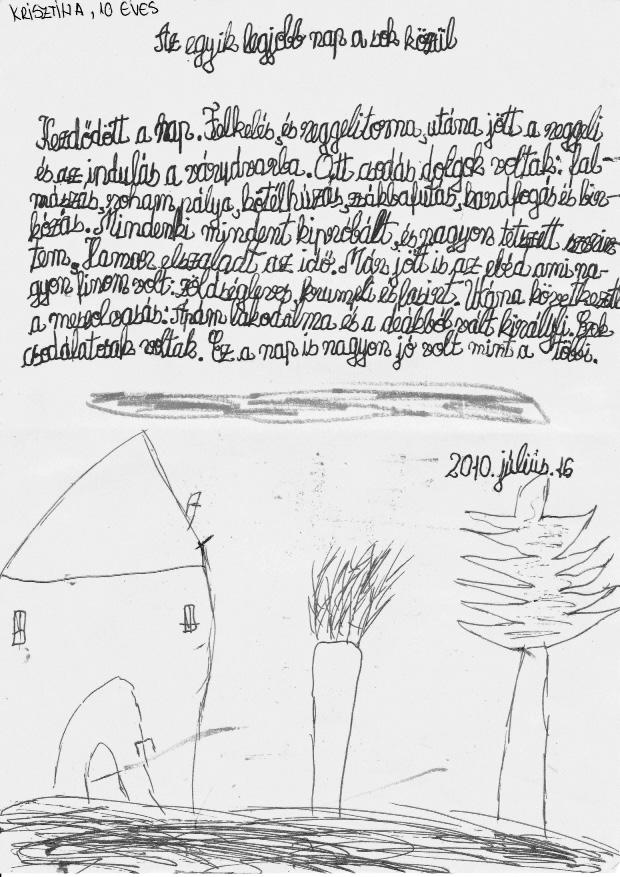 KRISZTINA, 10 ÉVES
Az egyik legjobb nap a sok közül
Kezdődött a nap. Felkelés, és reggelitorna, utána jött a reggeli
és az indulás a várudvarba. Ott csodás dolgok voltak: fal-
mászás, roham pálya, kötélhúzás, zsákbafutás, kardfogás és bir-
kózás. Mindenki mindent kipróbált, és nagyon tetszett
tem. Hamar elszaladt az idő. Már jött is az ebéd ami na-
gyon finom volt: zöldségleves, krumpli és fasirt. Utána következett
a meseolvasás: Aram lakodalma és a deákból vált királyfi. Ezek
csodálatosak voltak. Ez a nap is nagyon jó volt mint a többi.
2010. július. 16